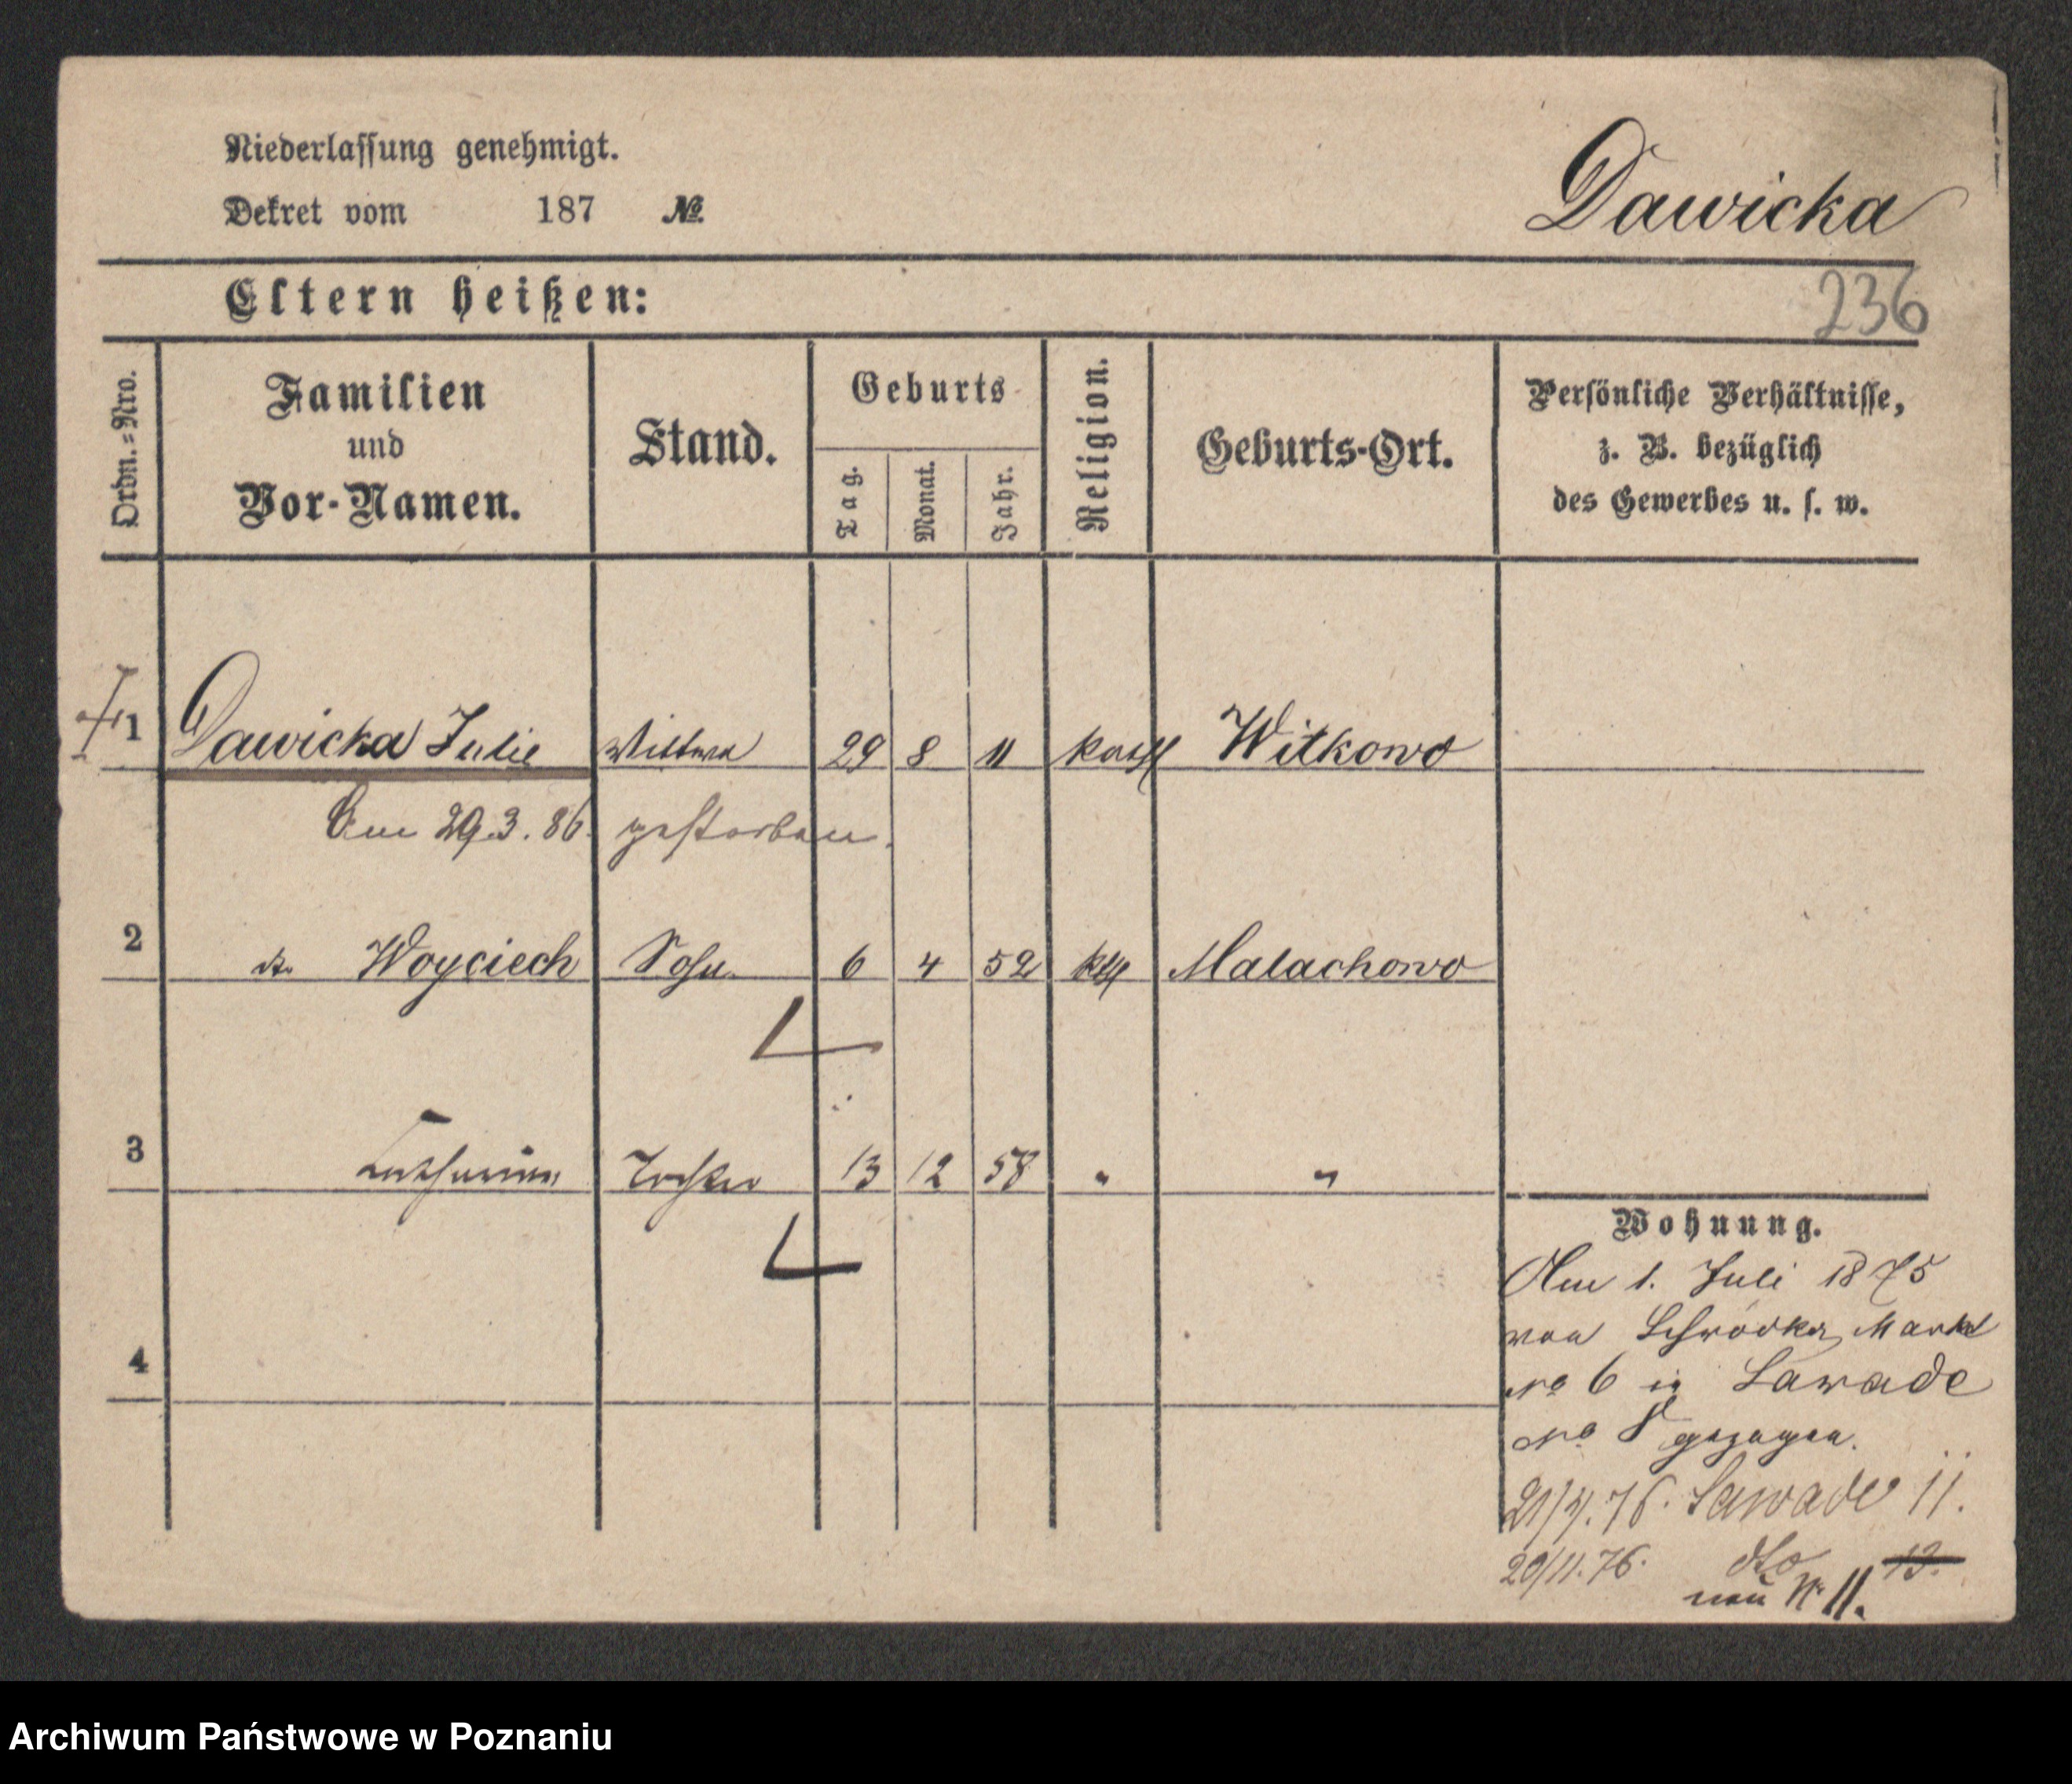 Niederlassung genehmigt.
Dekret vom 187 №
Dawicka
Eltern heißen:
236
Ordn.=Nro.
Familien
und
Vor-Namen.
Stand.
Geburts
Tag.
Monat.
Jahr.
Religion.
Geburts-Ort.
Persönliche Verhältnisse,
z. B. bezüglich
des Gewerbes u. s. w.
1 Dawicka Julie Wittwe 29 8 11 kath Witkowo
Am 29.3.86. gestorben.
2 dto Woyciech Sohn 6 4 52 kth Malachowo
3 Catharina Tochter 13 12 58 " "
4
Wohnung.
Am 1. Juli 1875
von Schrodka Markt
No 6 in Zawade
No 8 gezogen.
76. Zawade 11.
20/11.76. dto 13.
neu N: 11.
Archiwum Państwowe w Poznaniu